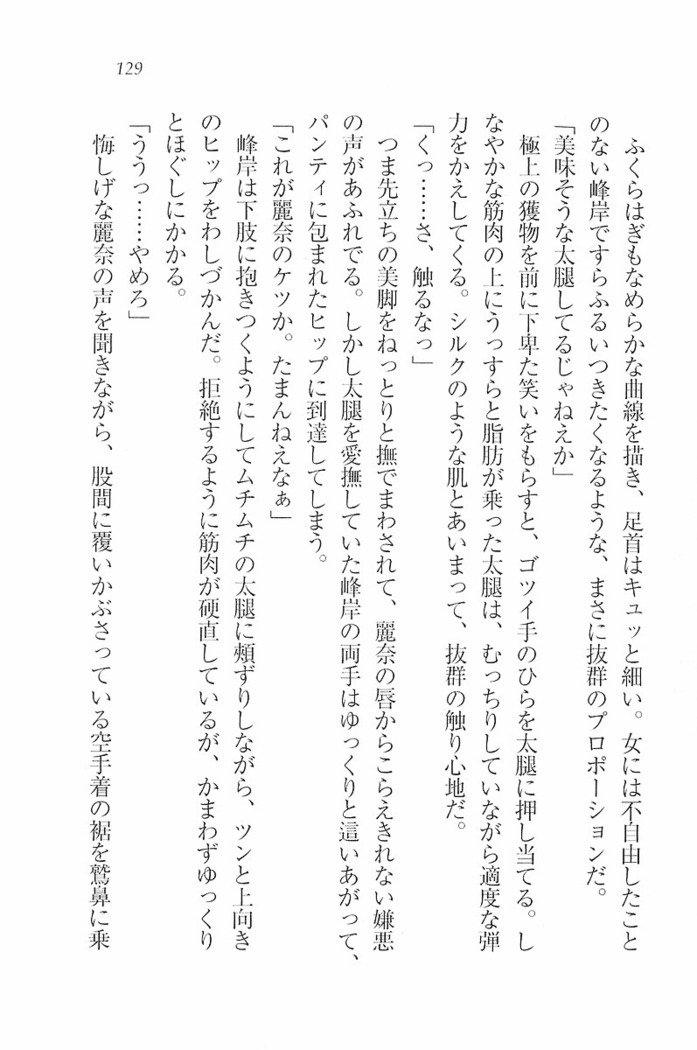 129
ふくらはぎもなめらかな曲線を描き、足首はキュッと細い。女には不自由したこと
のない峰岸ですらふるいつきたくなるような、まさに抜群のプロポーションだ。
「美味そうな太腿してるじゃねえか」
極上の獲物を前に下卑た笑いをもらすと、ゴツイ手のひらを太腿に押し当てる。し
なやかな筋肉の上にうっすらと脂肪が乗った太腿は、むっちりしていながら適度な弾
力をかえしてくる。シルクのような肌とあいまって、抜群の触り心地だ。
「くっ……さ、触るなっ」
つま先立ちの美脚をねっとりと撫でまわされて、麗奈の唇からこらえきれない嫌悪
の声があふれでる。しかし太腿を愛撫していた峰岸の両手はゆっくりと這いあがって、
パンティに包まれたヒップに到達してしまう。
「これが麗奈のケツか。たまんねえなぁ」
峰岸は下肢に抱きつくようにしてムチムチの太腿に頬ずりしながら、ツンと上向き
のヒップをわしづかんだ。拒絶するように筋肉が硬直しているが、かまわずゆっくり
とほぐしにかかる。
「ううっ……やめろ」
悔しげな麗奈の声を聞きながら、股間に覆いかぶさっている空手着の裾を鷲鼻に乗